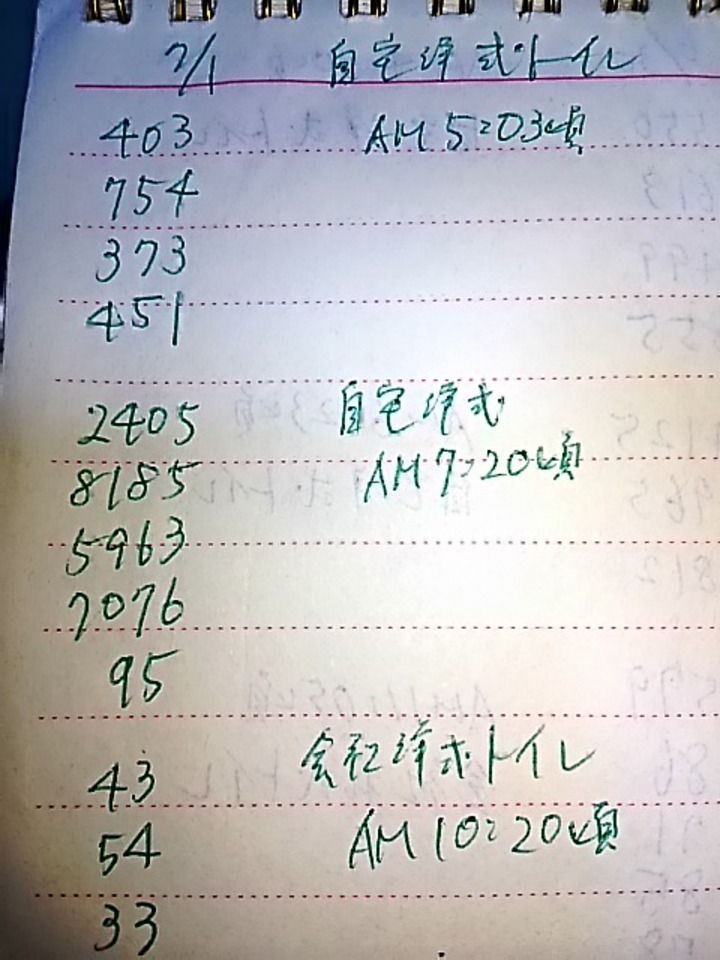 7/1 自宅洋式トイレ
403 AM 5:03頃
754
373
451
2405 自宅洋式
8185 AM 7:20頃
5963
7076
95
43 会社洋式トイレ
54 AM 10:20頃
33